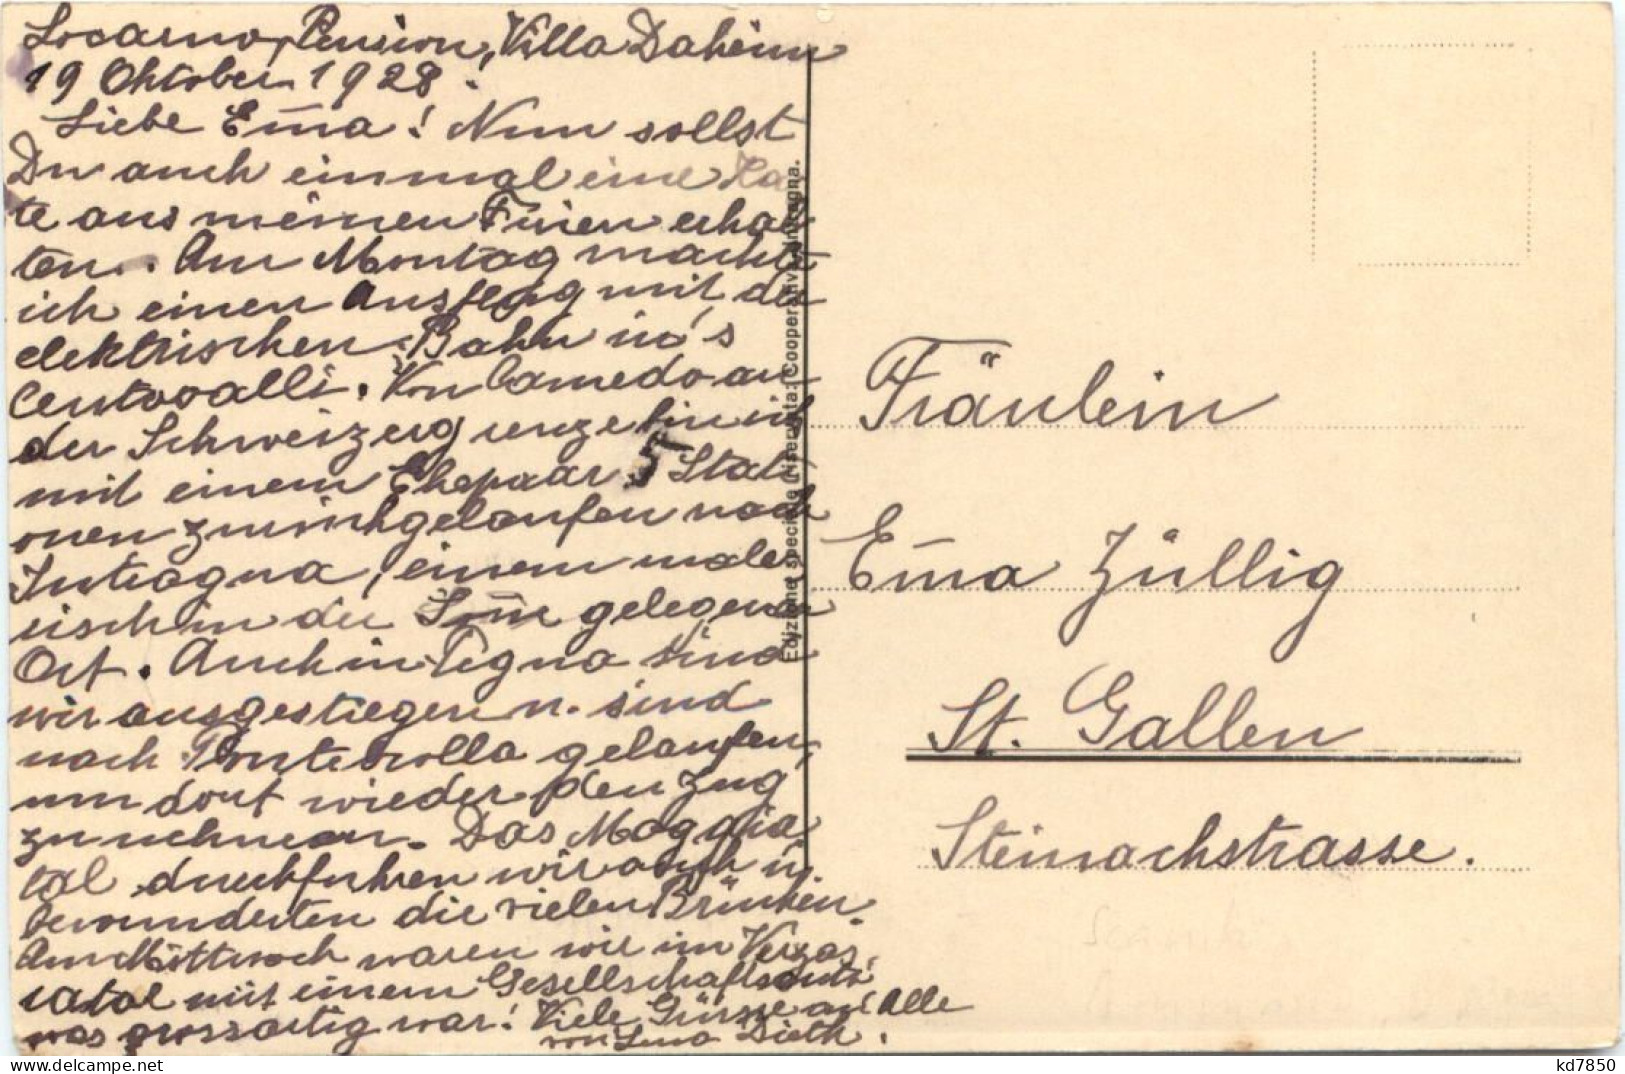 Locarno, Pension, Villa Daheim
19 Oktober 1928.
Liebe Em̅a! Nun sollst
Du auch einmal eine Kar
te aus meinen Ferien erhal
ten. Am Montag machte
ich einen Ausflug mit der
elektrischen Bahn in's
Centovalli. Von Camedo an
der Schweizergrenze bin ich
mit einem Ehepaar 5 Stati
onen zurückgelaufen nach
Intragna, einem male,
risch in der Son̅e gelegenen
Ort. Auch in Tegna sind
wir ausgestiegen u. sind
nach Ponte Brolla gelaufen,
um dort wieder den Zug
zu nehmen. Das Maggia
tal durchfuhren wir auch u.
bewunderten die vielen Brücken.
Am Mittwoch waren wir im Verzas,
catal mit einem Gesellschaftsauto
was grossartig war! Viele Grüsse an Alle
von Lina Dieth.
Edizione speciale Cooperativa Intragna.
Fräulein
Em̅a Züllig
St. Gallen
Steinachstrasse.
kd7850